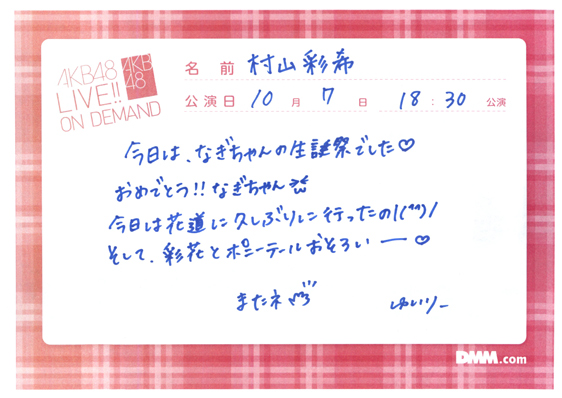 AKB48
LIVE!!
ON DEMAND
AKB
48
名前 村山彩希
公演日 10月 7日 18:30 公演
今日は、なぎちゃんの生誕祭でした♡
おめでとう!!なぎちゃん
今日は花道に久しぶりに行ったの\(^^)/
そして、彩花とポニーテールおそろいー♡
またネ
ゆいりー
DMM.com